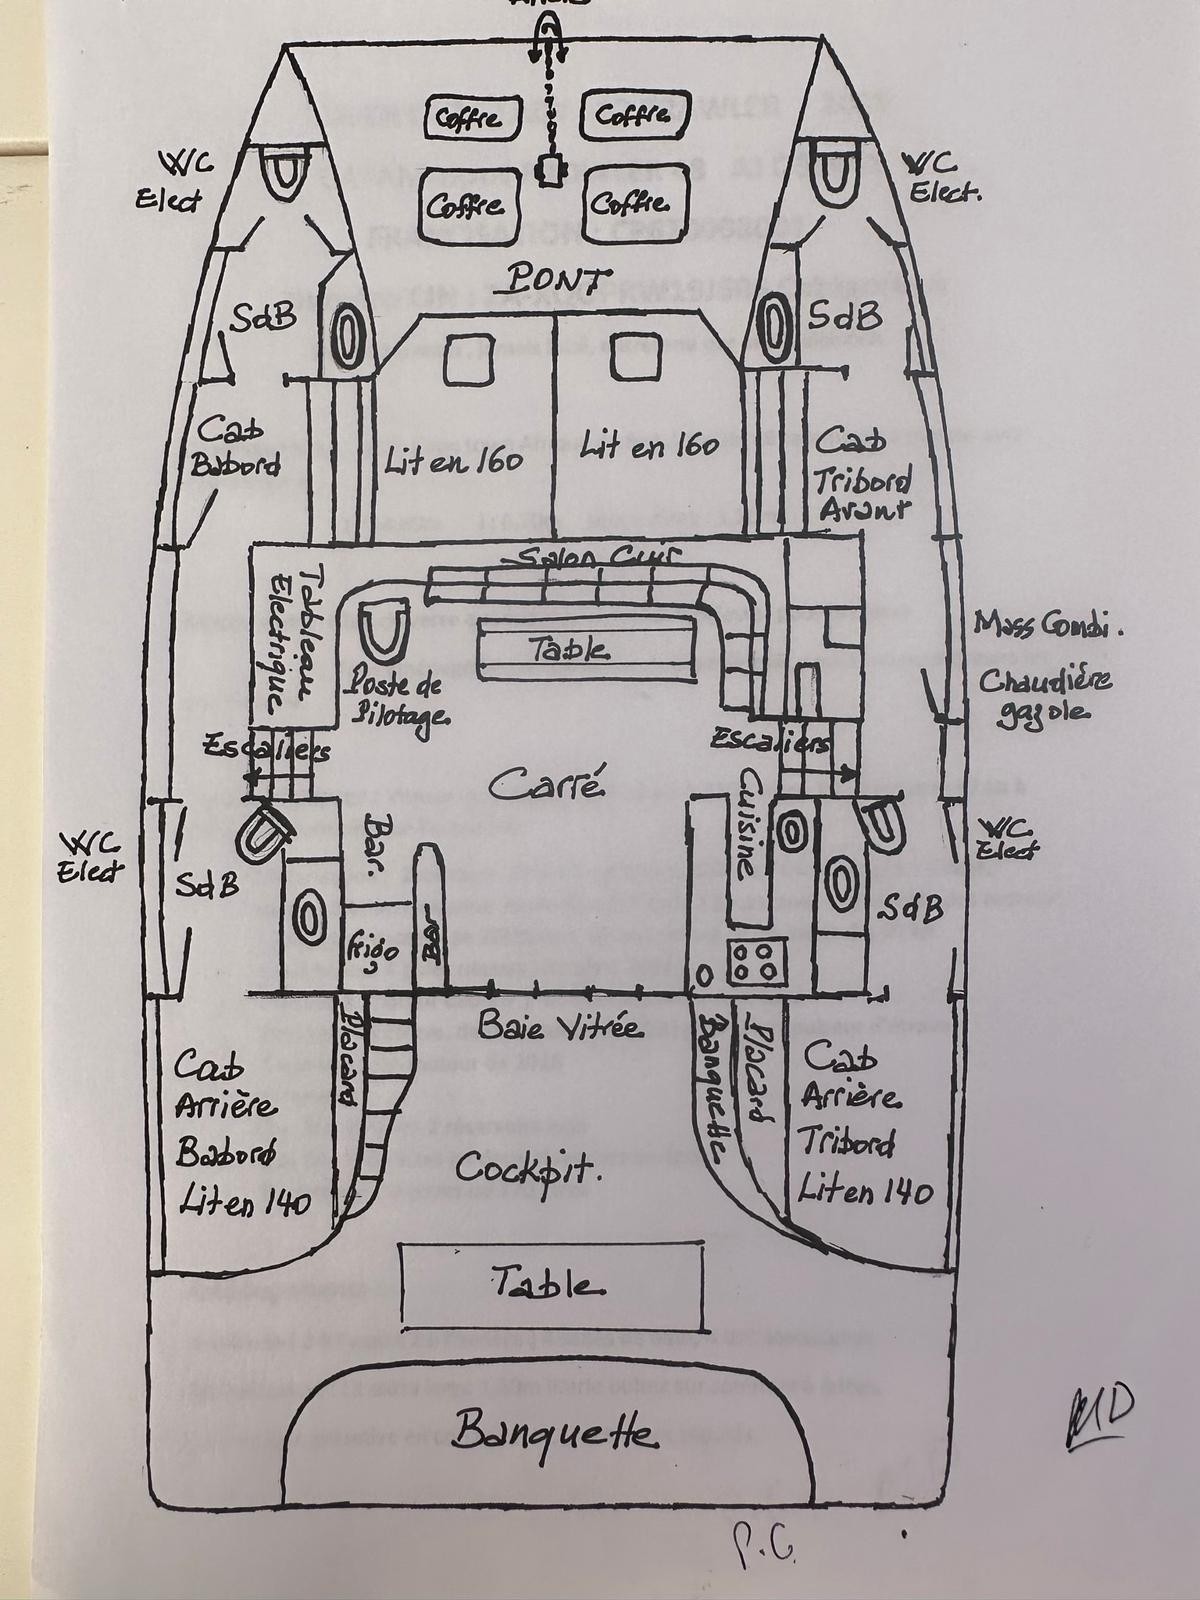 Coffre
Coffre
WC
Elect
WC
Elect.
Coffre
Coffre
PONT
SdB
SdB
Cab
Babord
Lit en 160
Lit en 160
Cab
Tribord
Avant
Salon Cuir
Tableau
Electrique
Table
Poste de
Pilotage
Mass Combi.
Chaudière
gazole
Escaliers
Escaliers
Carré
Bar.
Cuisine
WC
Elect
WC
Elect
SdB
SdB
frigo
Bar
Baie Vitrée
Placard
Banquette
Placard
Cab
Arrière
Babord
Lit en 140
Cab
Arrière
Tribord
Lit en 140
Cockpit.
Table
Banquette
MD
P.G.